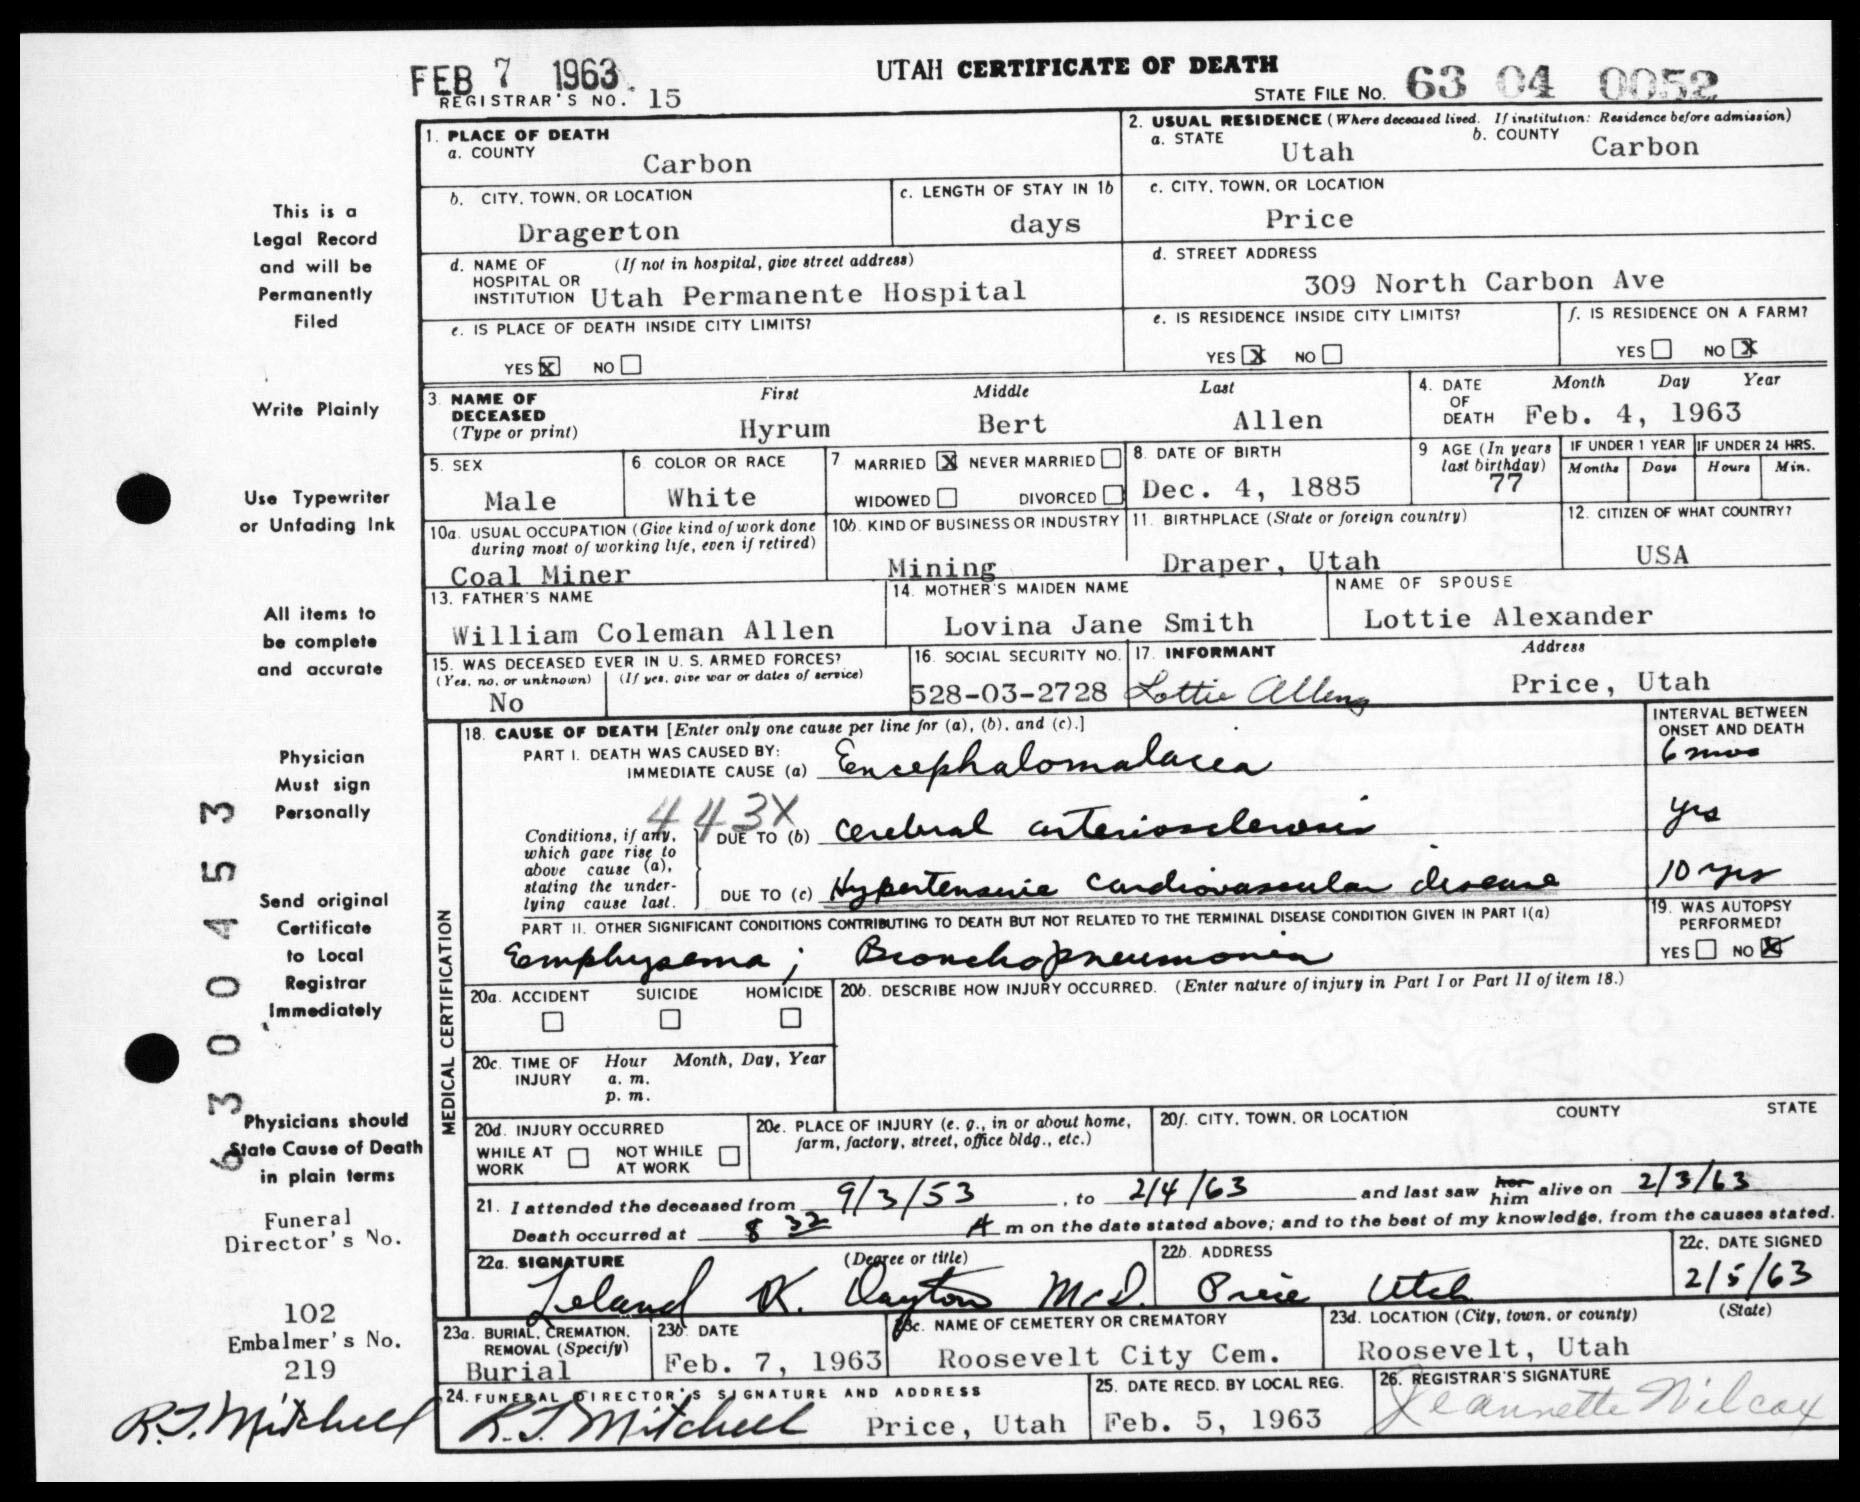 FEB 7 1963
UTAH CERTIFICATE OF DEATH
REGISTRAR'S NO. 15
STATE FILE NO. 63 04 0052
1. PLACE OF DEATH
a. COUNTY
Carbon
2. USUAL RESIDENCE (Where deceased lived. If institution: Residence before admission)
a. STATE Utah b. COUNTY Carbon
b. CITY, TOWN, OR LOCATION
Dragerton
c. LENGTH OF STAY IN 1b
days
c. CITY, TOWN, OR LOCATION
Price
d. NAME OF HOSPITAL OR INSTITUTION (If not in hospital, give street address)
Utah Permanente Hospital
d. STREET ADDRESS
309 North Carbon Ave
e. IS PLACE OF DEATH INSIDE CITY LIMITS?
YES X NO
e. IS RESIDENCE INSIDE CITY LIMITS?
YES X NO
f. IS RESIDENCE ON A FARM?
YES NO X
3. NAME OF DECEASED (Type or print)
First Middle Last
Hyrum Bert Allen
4. DATE OF DEATH Month Day Year
Feb. 4, 1963
5. SEX
Male
6 COLOR OR RACE
White
7. MARRIED X NEVER MARRIED
WIDOWED DIVORCED
8. DATE OF BIRTH
Dec. 4, 1885
9 AGE (In years last birthday)
77
IF UNDER 1 YEAR
Months Days
IF UNDER 24 HRS.
Hours Min.
10a. USUAL OCCUPATION (Give kind of work done during most of working life, even if retired)
Coal Miner
10b. KIND OF BUSINESS OR INDUSTRY
Mining
11. BIRTHPLACE (State or foreign country)
Draper, Utah
12. CITIZEN OF WHAT COUNTRY?
USA
13. FATHER'S NAME
William Coleman Allen
14. MOTHER'S MAIDEN NAME
Lovina Jane Smith
NAME OF SPOUSE
Lottie Alexander
15. WAS DECEASED EVER IN U. S. ARMED FORCES?
(Yes, no, or unknown) (If yes, give war or dates of service)
No
16. SOCIAL SECURITY NO.
528-03-2728
17. INFORMANT Address
Lottie Allen Price, Utah
18. CAUSE OF DEATH [Enter only one cause per line for (a), (b), and (c).]
INTERVAL BETWEEN ONSET AND DEATH
PART I. DEATH WAS CAUSED BY:
IMMEDIATE CAUSE (a) Encephalomalacea 6 mos
443X
Conditions, if any, which gave rise to above cause (a), stating the underlying cause last.
DUE TO (b) Cerebral arteriosclerosis yrs
DUE TO (c) Hypertensive cardiovascular disease 10 yrs
PART II. OTHER SIGNIFICANT CONDITIONS CONTRIBUTING TO DEATH BUT NOT RELATED TO THE TERMINAL DISEASE CONDITION GIVEN IN PART I(a)
Emphysema; Bronchopneumonia
19. WAS AUTOPSY PERFORMED?
YES NO X
20a. ACCIDENT SUICIDE HOMICIDE
20b. DESCRIBE HOW INJURY OCCURRED. (Enter nature of injury in Part I or Part II of item 18.)
20c. TIME OF INJURY Hour Month, Day, Year
a. m.
p. m.
20d. INJURY OCCURRED
WHILE AT WORK NOT WHILE AT WORK
20e. PLACE OF INJURY (e. g., in or about home, farm, factory, street, office bldg., etc.)
20f. CITY, TOWN, OR LOCATION COUNTY STATE
21. I attended the deceased from 9/3/53, to 2/4/63 and last saw her him alive on 2/3/63
Death occurred at 8 32 A m on the date stated above; and to the best of my knowledge, from the causes stated.
22a. SIGNATURE (Degree or title)
Leland K. Dayton M.D.
22b. ADDRESS
Price Utah
22c. DATE SIGNED
2/5/63
23a. BURIAL, CREMATION, REMOVAL (Specify)
Burial
23b. DATE
Feb. 7, 1963
23c. NAME OF CEMETERY OR CREMATORY
Roosevelt City Cem.
23d. LOCATION (City, town, or county) (State)
Roosevelt, Utah
24. FUNERAL DIRECTOR'S SIGNATURE AND ADDRESS
R.T. Mitchell Price, Utah
25. DATE RECD. BY LOCAL REG.
Feb. 5, 1963
26. REGISTRAR'S SIGNATURE
Jeannette Wilcox
MEDICAL CERTIFICATION
This is a
Legal Record
and will be
Permanently
Filed
Write Plainly
Use Typewriter
or Unfading Ink
All items to
be complete
and accurate
Physician
Must sign
Personally
Send original
Certificate
to Local
Registrar
Immediately
Physicians should
State Cause of Death
in plain terms
6300453
Funeral
Director's No.
102
Embalmer's No.
219
R.T. Mitchell